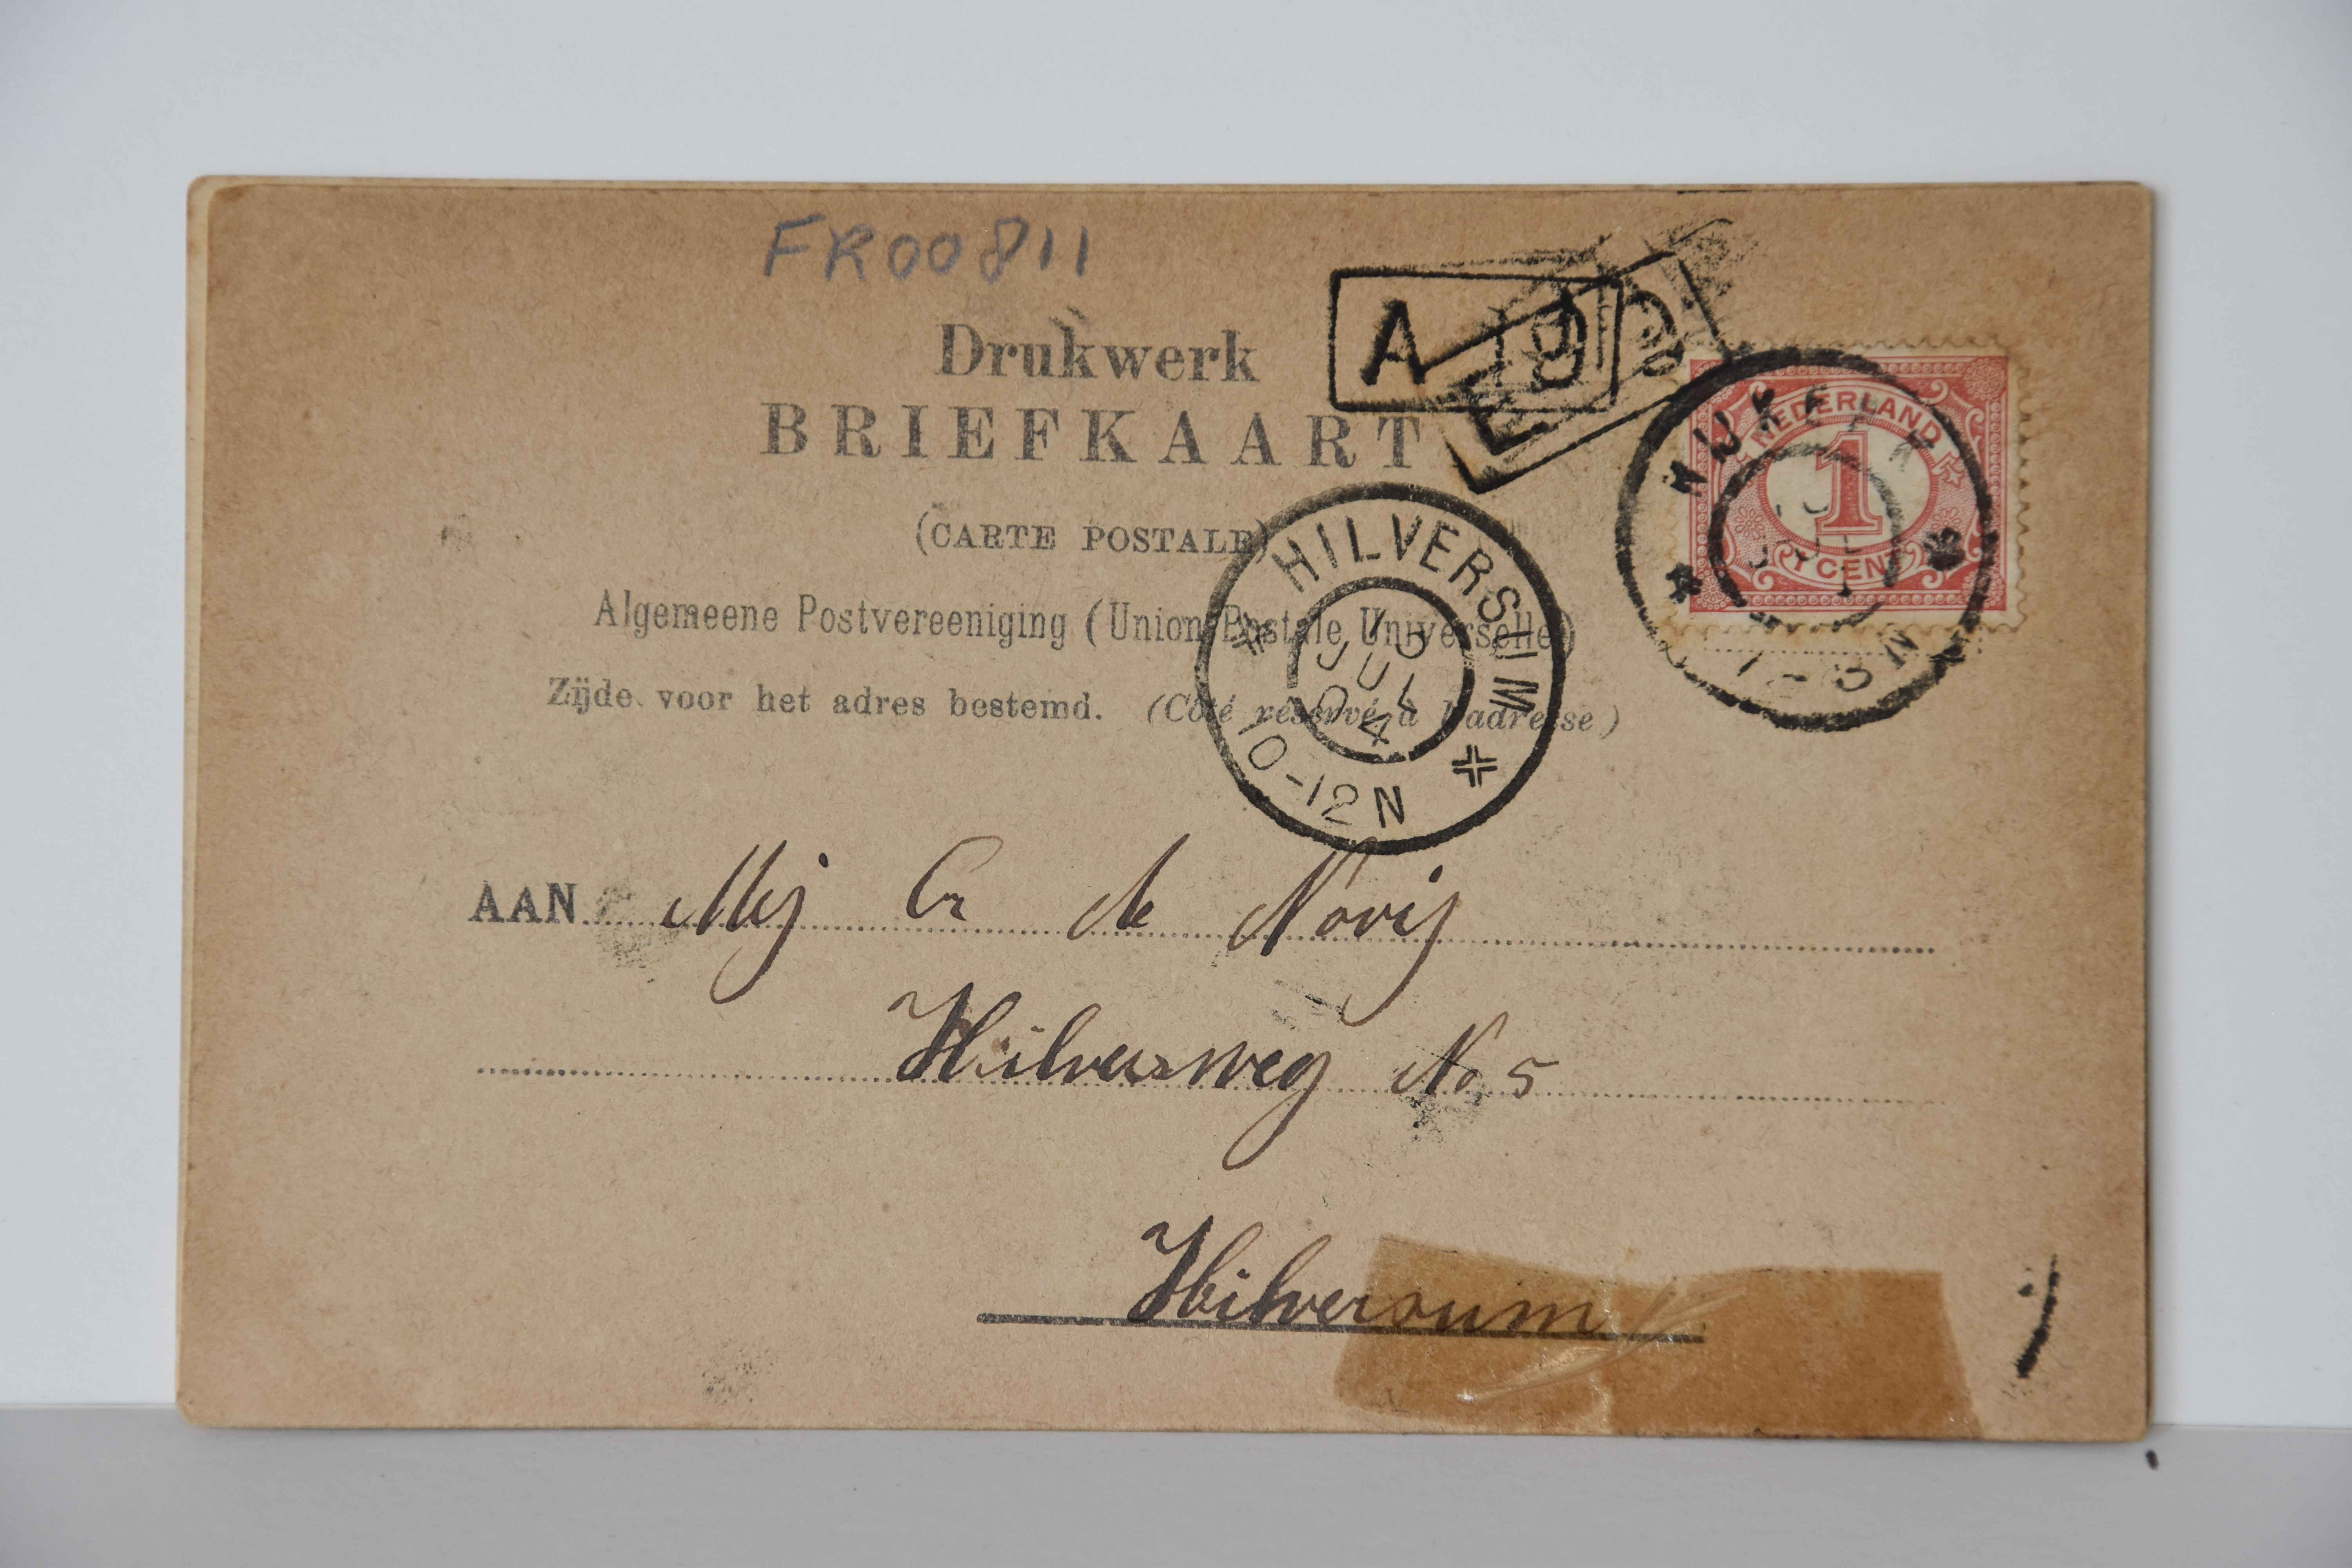 FR00811
Drukwerk
BRIEFKAART
(CARTE POSTALE)
Algemeene Postvereeniging (Union Postale Universelle)
Zijde voor het adres bestemd. (Côté réservé à l'adresse)
A 19
NEDERLAND
1
1 CENT
NIJKERK
JUL
HILVERSUM
JUL
04
10-12N
AAN Mej Cr de Nooij
Hilversweg No 5
Hilversum